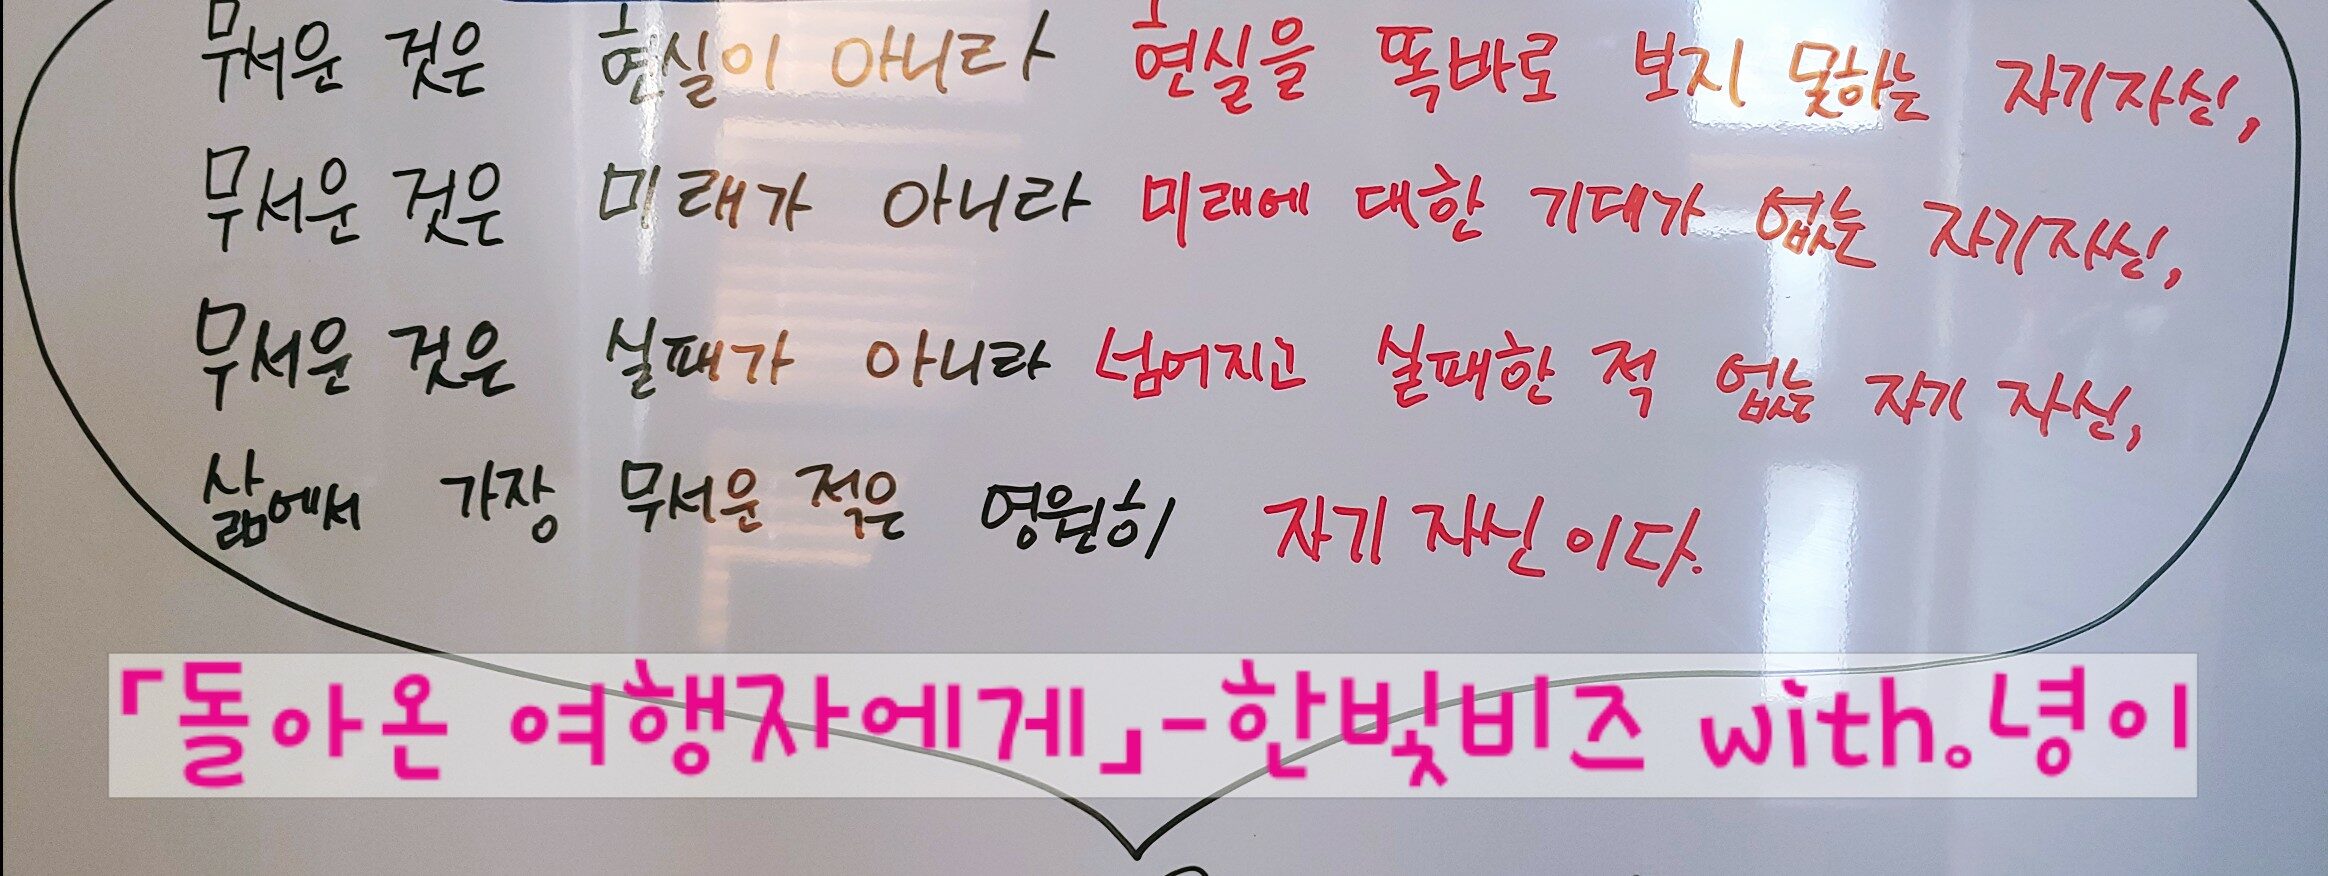 무서운 것은 현실이 아니라 현실을 똑바로 보지 못하는 자기자신,
무서운 것은 미래가 아니라 미래에 대한 기대가 없는 자기자신,
무서운 것은 실패가 아니라 넘어지고 실패한 적 없는 자기 자신,
삶에서 가장 무서운 적은 영원히 자기 자신이다.
「돌아온 여행자에게」-한빛비즈 with。녕이